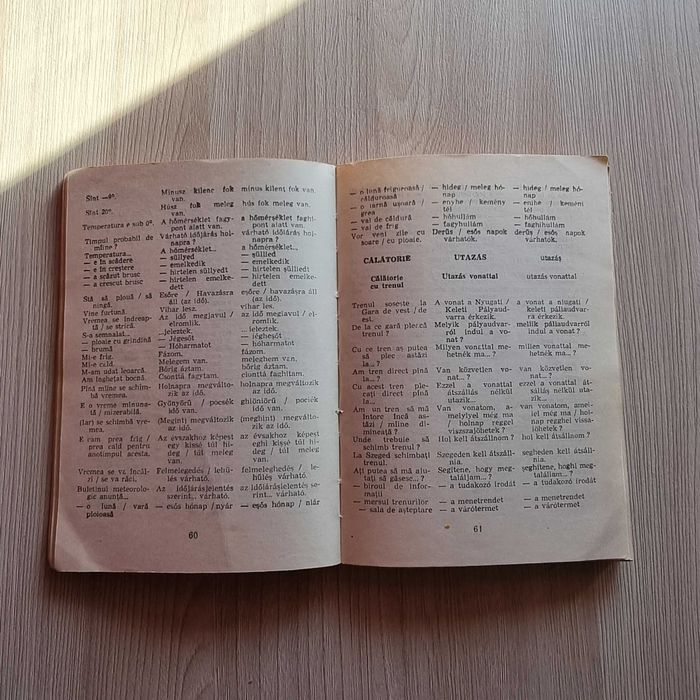 Sînt —9°. Minusz kilenc fok van. minus kilenț fok van.
Sînt 20°. Húsz fok meleg van. hús fok meleg van.
Temperatura e sub 0°. A hőmérséklet fagypont alatt van. a hőmérséklet faghipont alatt van.
Timpul probabil de mîine? Várható időjárás holnapra? várható időiárás holnapra?
Temperatura... A hőmérséklet... a hőmérséklet...
— e în scădere — süllyed — süllied
— e în creștere — emelkedik — emelkedik
— a scăzut brusc — hirtelen süllyedt — hirtelen süllied
— a crescut brusc — hirtelen emelkedett — hirtelen emelkedett
Stă să plouă / să ningă. Esőre / havazásra áll (az idő). esőre / havazásra áll (az idő).
Vine furtună. Vihar lesz. vihar les.
Vremea se îndreaptă / se strică. Az idő megjavul / elromlik. az idő megiavul / elromlik.
S-a semnalat... ...jeleztek. ...ieleztek.
— ploaie cu grindină — Jégesőt — iéghesőt
— brumă — Hóharmatot — hóharmatot
Mi-e frig. Fázom. fázom.
Mi-e cald. Melegem van. meleghem van.
M-am udat leoarcă. Bőrig áztam. bőrig áztam.
Am înghețat bocnă. Csonttá fagytam. cionttá faghitam.
Pînă mîine se schimbă vremea. Holnapra megváltozik az idő. holnapra megváltozik az idő.
E o vreme minunată / mizerabilă. Gyönyörű / pocsék idő van. ghiöniörű / pociék idő van.
(Iar) se schimbă vremea. (Megint) megváltozik az idő. (meghint) megváltozik az idő.
E ram prea frig / prea cald pentru anotimpul acesta. Az évszakhoz képest egy kissé túl hideg / meleg van. az évsakhoz képest eghi kissé túl hideg / meleg van.
Vremea se va încălzi / se va răci. Felmelegedés / lehűlés várható. felmeleghedés / lehűlés várható.
Buletinul meteorologic anunță... Az időjárásjelentés szerint... várható. az időiárásielentés serint... várható.
— o lună / vară ploioasă — esős hónap / nyár — esős hónap / niár
60
— o lună friguroasă / călduroasă — hideg / meleg hónap — hideg / meleg hónap
— o iarnă ușoară / grea — enyhe / kemény tél — enihe / keméni tél
— val de căldură — hőhullám — hőhullám
— val de frig — fagyhullám — faghihullám
Vor veni zile cu soare / cu ploaie. Derűs / esős napok várhatók. derűs / esős napok várhatók.
CĂLĂTORIE UTAZÁS utazáș
Călătorie cu trenul Utazás vonattal utazás vonattal
Trenul sosește la Gara de vest / de est. A vonat a Nyugati / Keleti Pályaudvarra érkezik. a vonat a niugati / keleti páliaudvarra érkezik.
De la ce gară pleacă trenul? Melyik pályaudvarról indul a vonat? mellik páliaudvarról indul a vonat?
Cu ce tren aș putea să plec astăzi la...? Milyen vonattal mehetnék ma...? milien vonattal mehetnék ma...?
Am tren direct pînă la...? Van közvetlen vonat...? van közvetlen vonat...?
Cu acest tren plecați direct pînă la... Ezzel a vonattal átszállás nélkül utazik... ezzel a vonattal átsállás nélkül utazik...
Am un tren să mă întorc încă astăzi / mîine dimineață? Van vonatom, amelyikel még ma / holnap reggel visszajöhetek? van vonatom, ameliel még ma / holnap reggel vissaiöhetek?
Unde trebuie să schimb trenul? Hol kell átszállnom? hol kell átsállnom?
La Szeged schimbați trenul. Szegeden kell átszállnia. segheden kell átsállnia.
Ați putea să mă ajutați să găsesc...? Segítene, hogy megtaláljam...? segítene, hoghi megtaláliam...?
— biroul de informații — a tudakozó irodát — a tudakozó irodát
— mersul trenurilor — a menetrendet — a menetrendet
— sala de așteptare — a várótermet — a várótermet
61